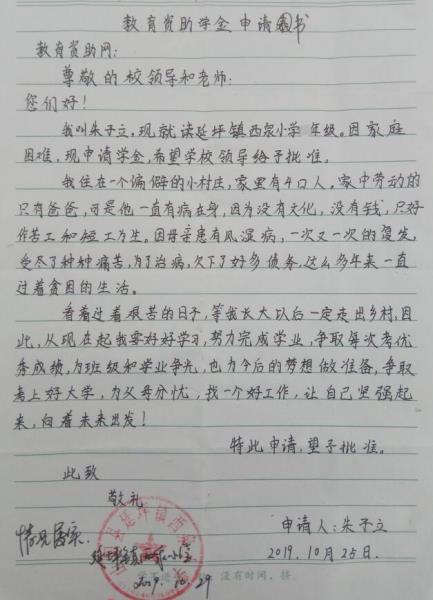 教育资助学金申请书
教育资助网:
尊敬的校领导和老师:
您们好!
我叫朱子立,现就读延坪镇西泉小学 年级。因家庭
困难,现申请学金,希望学校领导给予批准。
我住在一个偏僻的小村庄,家里有4口人。家中劳动的
只有爸爸,可是他一直有病在身,因为没有文化,没有钱,只好
作苦工和短工为生。因母亲患有风湿病,一次又一次的复发,
受尽了种种痛苦,为了治病,欠下了好多债务,这么多年来一直
过着贫困的生活。
看着过着艰苦的日子,等我长大以后一定走出乡村,因
此,从现在起我要好好学习,努力完成学业,争取每次考优
秀成绩,为班级和学业争光,也为今后的梦想做准备,争取
考上好大学,为父母分忧,找一个好工作,让自己坚强起
来,向着未来出发!
特此申请,望予批准。
此致
敬礼
情况属实
申请人:朱子立
延坪镇西泉小学
2019.10.25日.
2019.10.29
没有时间,挤